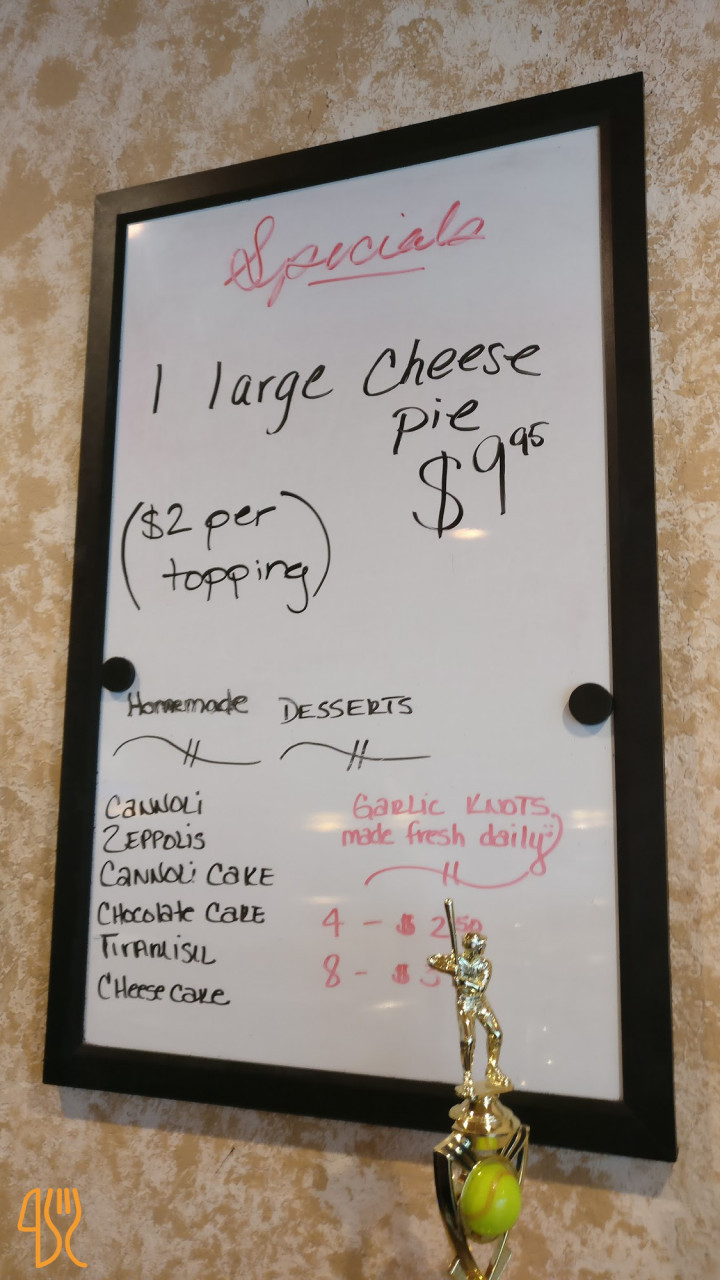 Specials
1 large Cheese
pie
$9.95
($2 per
topping)
Homemade DESSERTS
CANNOLI
ZEPPOLIS
CANNOLI CAKE
CHOCOLATE CAKE
TIRAMISU
CHEESE CAKE
GARLIC KNOTS
made fresh daily
4 - $ 2.50
8 - $